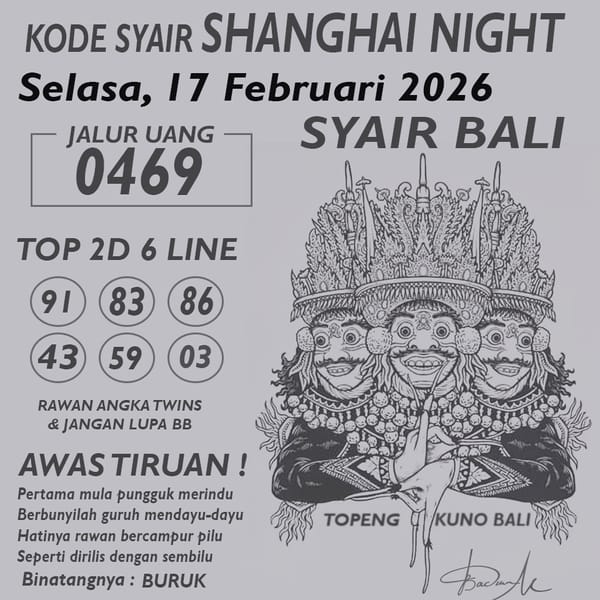 KODE SYAIR SHANGHAI NIGHT
Selasa, 17 Februari 2026
JALUR UANG
0469
SYAIR BALI
TOP 2D 6 LINE
91 83 86
43 59 03
RAWAN ANGKA TWINS
& JANGAN LUPA BB
AWAS TIRUAN !
Pertama mula pungguk merindu
Berbunyilah guruh mendayu-dayu
Hatinya rawan bercampur pilu
Seperti dirilis dengan sembilu
Binatangnya : BURUK
TOPENG KUNO BALI